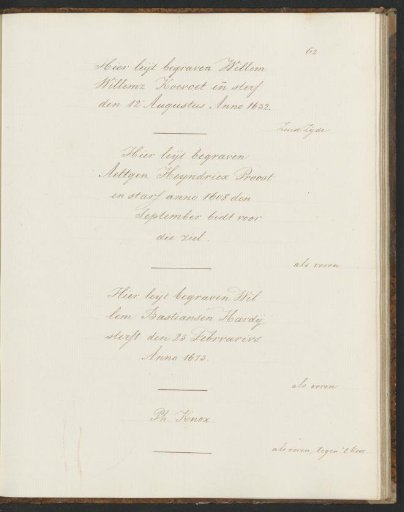 62
Hier leijt begraven Willem
Willemz Koevoet en̄ sterf
den 12 Augustus Anno 1632.
Zuid Zyde
Hier leijt begraven
Aeltgen Heyndricx Proost
en starf anno 1608 den
September bidt voor
die ziel.
als voren
Hier leijt begraven Wil
lem Bastiaensen Hardij
sterft den 25 Februarivs
Anno 1673.
als voren
Ph. Knox.
als voren, tegen 't Koor